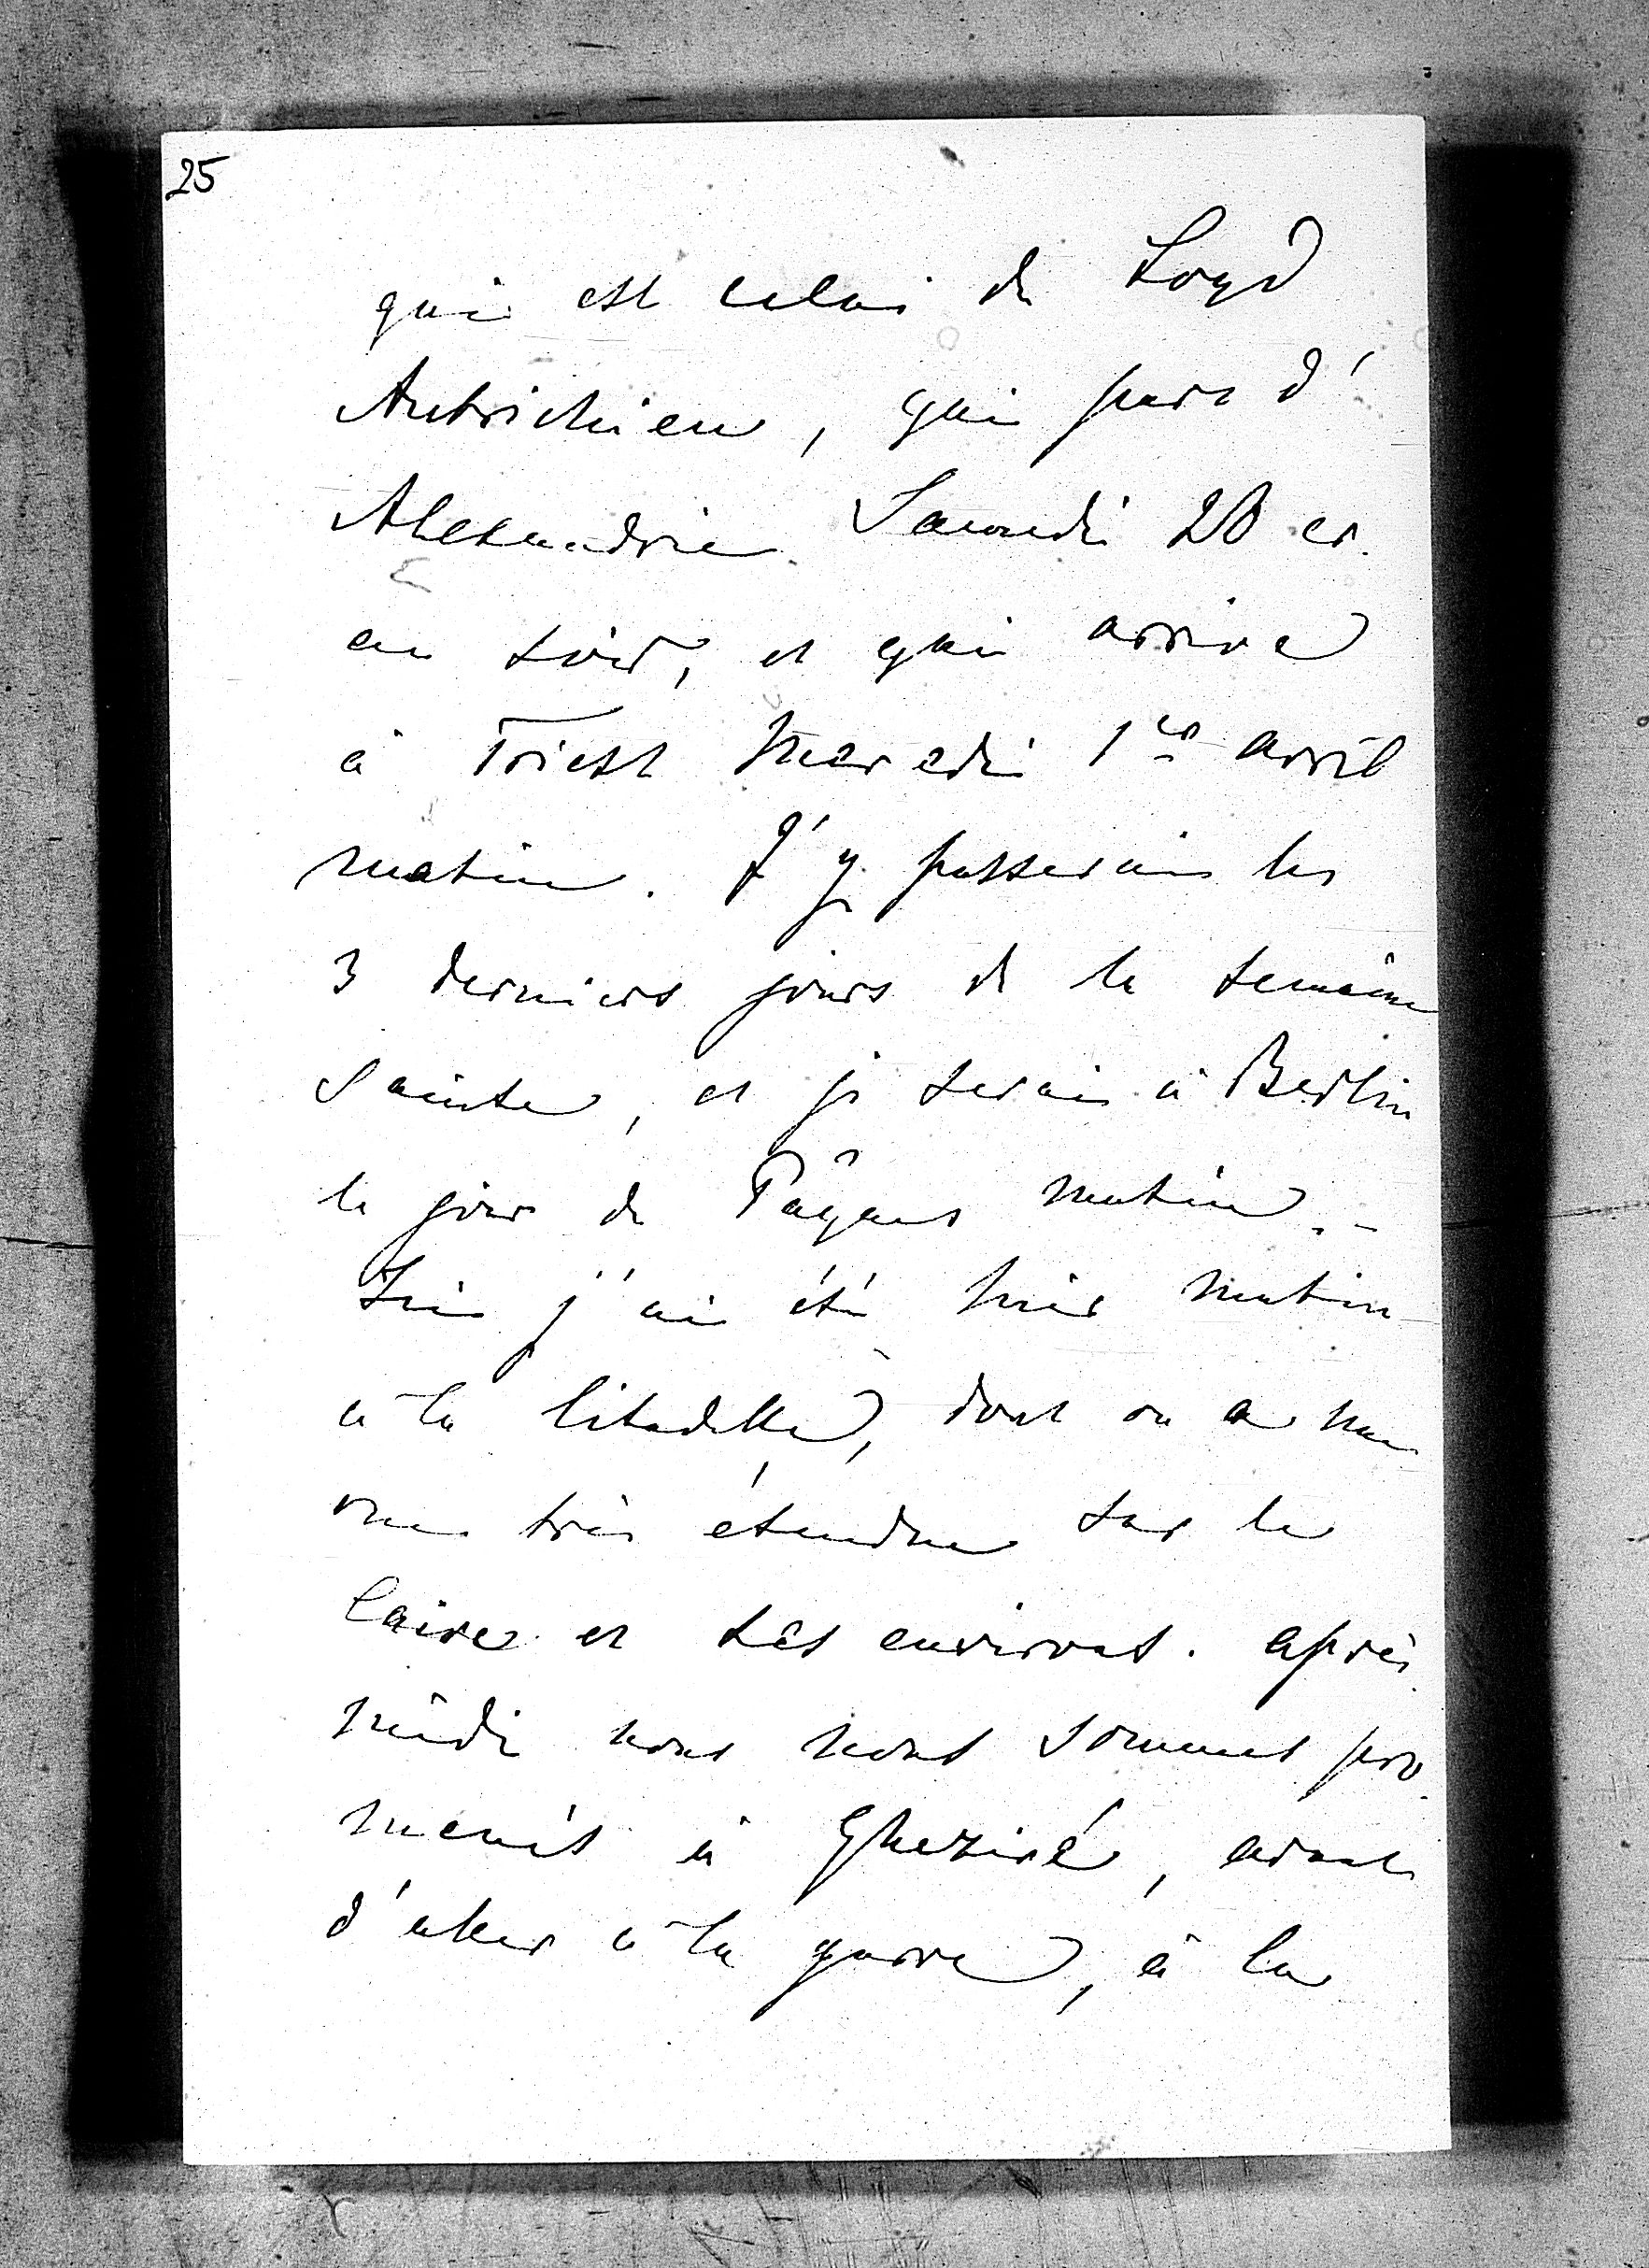 25
qui est celui du Loyd
Autrichien, qui part d'
Alexandrie Samedi 28 cr.
au soir, et qui arrive
à Triest Mercredi 1er avril
matin. J'y passerais les
3 derniers jours de la semaine
Sainte, et je serais à Berlin
le jour de Pâques matin. -
Ici j'ai été hier matin
à la Citadelle, dont on a une
vue très étendue sur le
Caire et ses environs. après
midi nous nous sommes pro
menés à Gheziré, avant
d'aller à la gare, à la